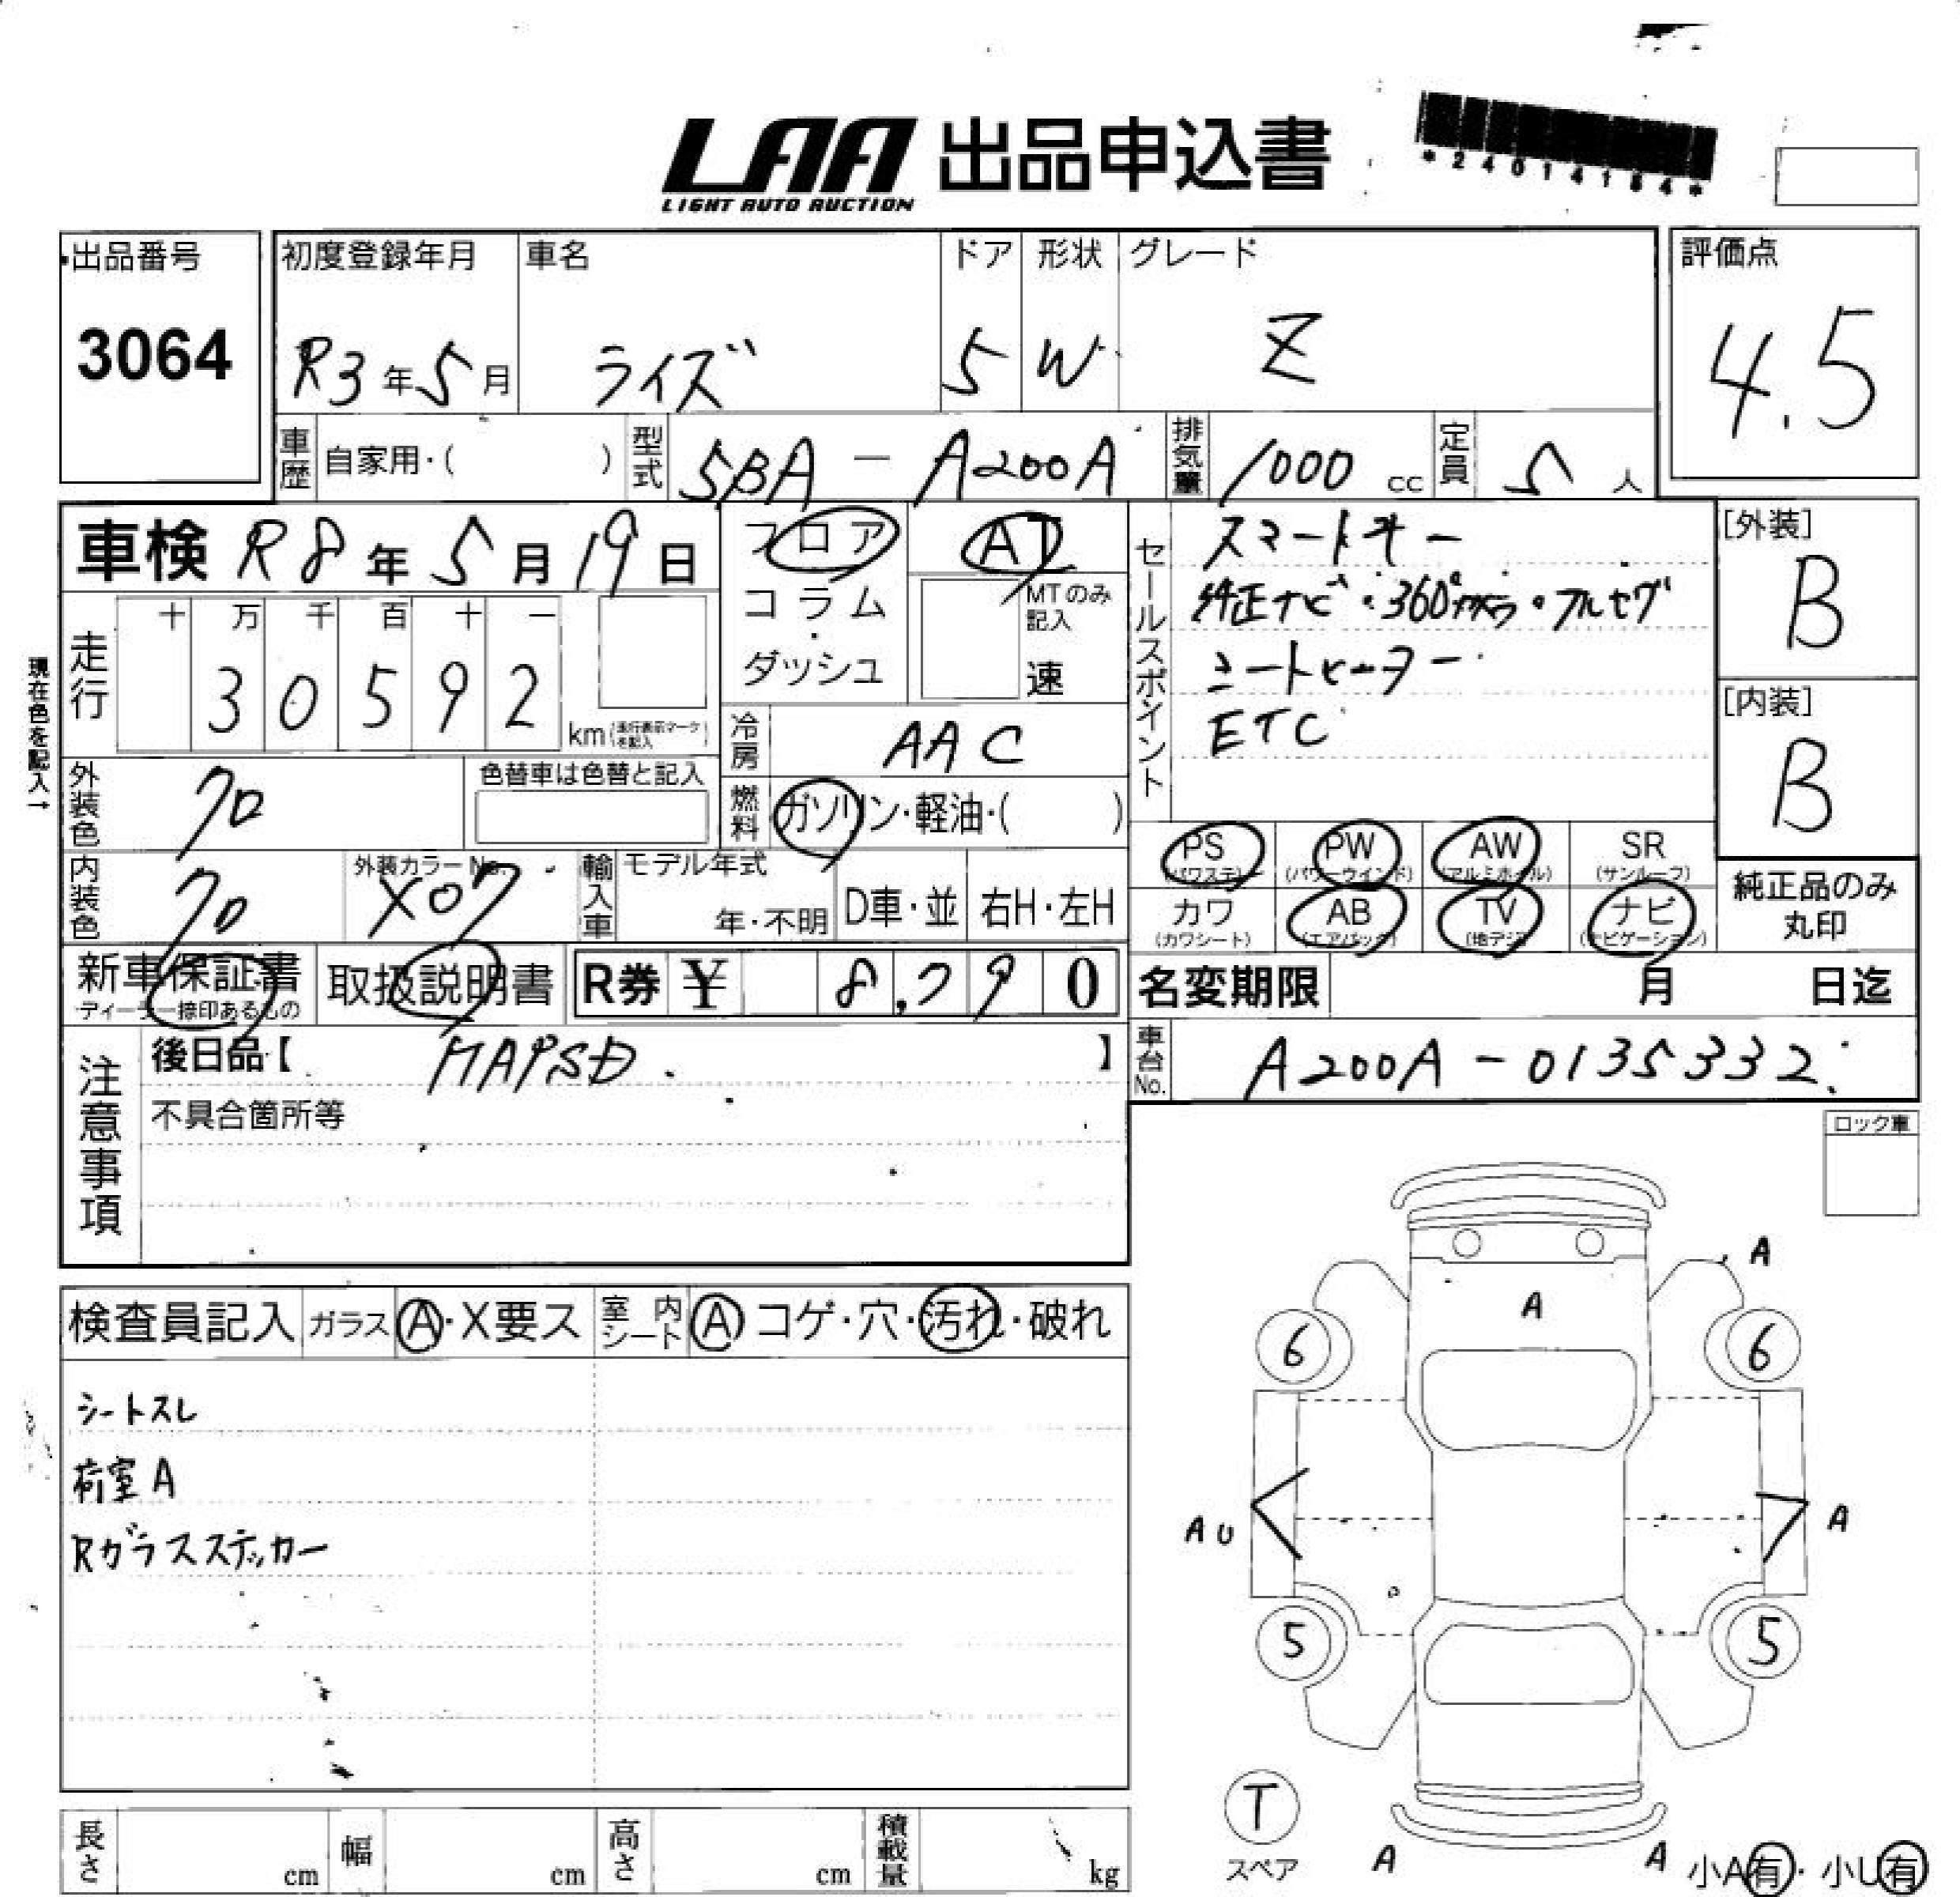 LAA 出品申込書
LIGHT AUTO AUCTION
*24014184*
出品番号
3064
初度登録年月
R3年5月
車名
ライズ
ドア
5
形状
W
グレード
Z
評価点
4.5
車歴
自家用・( )
型式
5BA - A200A
排気量
1000 cc
定員
5 人
車検 R8年5月19日
フロア
コラム・ダッシュ
AT
MTのみ記入
速
現在色を記入→
走行
十 万 千 百 十 一
3 0 5 9 2
km (走行表示マークを記入)
冷房
AAC
外装色
クロ
色替車は色替と記入
燃料
ガソリン・軽油・( )
内装色
クロ
外装カラーNo.
X07
輸入車
モデル年式
年・不明
D車・並
右H・左H
セールスポイント
スマートキー
純正ナビ・360°カメラ・フルセグ
シートヒーター
ETC
[外装]
B
[内装]
B
PS
(パワステ)
PW
(パワーウインド)
AW
(アルミホイル)
SR
(サンルーフ)
カワ
(カワシート)
AB
(エアバック)
TV
(地デジ)
ナビ
(ナビゲーション)
純正品のみ
丸印
新車保証書
ディーラー捺印あるもの
取扱説明書
R券 ¥ 8,790
名変期限 月 日迄
車台No.
A200A-0135332
注意事項
後日品【 MAPSD 】
不具合箇所等
ロック車
検査員記入
ガラス
A・X要ス
室内シート
A コゲ・穴・汚れ・破れ
シートスレ
荷室A
Rガラスステッカー
A
A
6
6
AU
A
5
5
T
スペア
A
A
小A有・小U有
長さ cm
幅 cm
高さ cm
積載量 kg